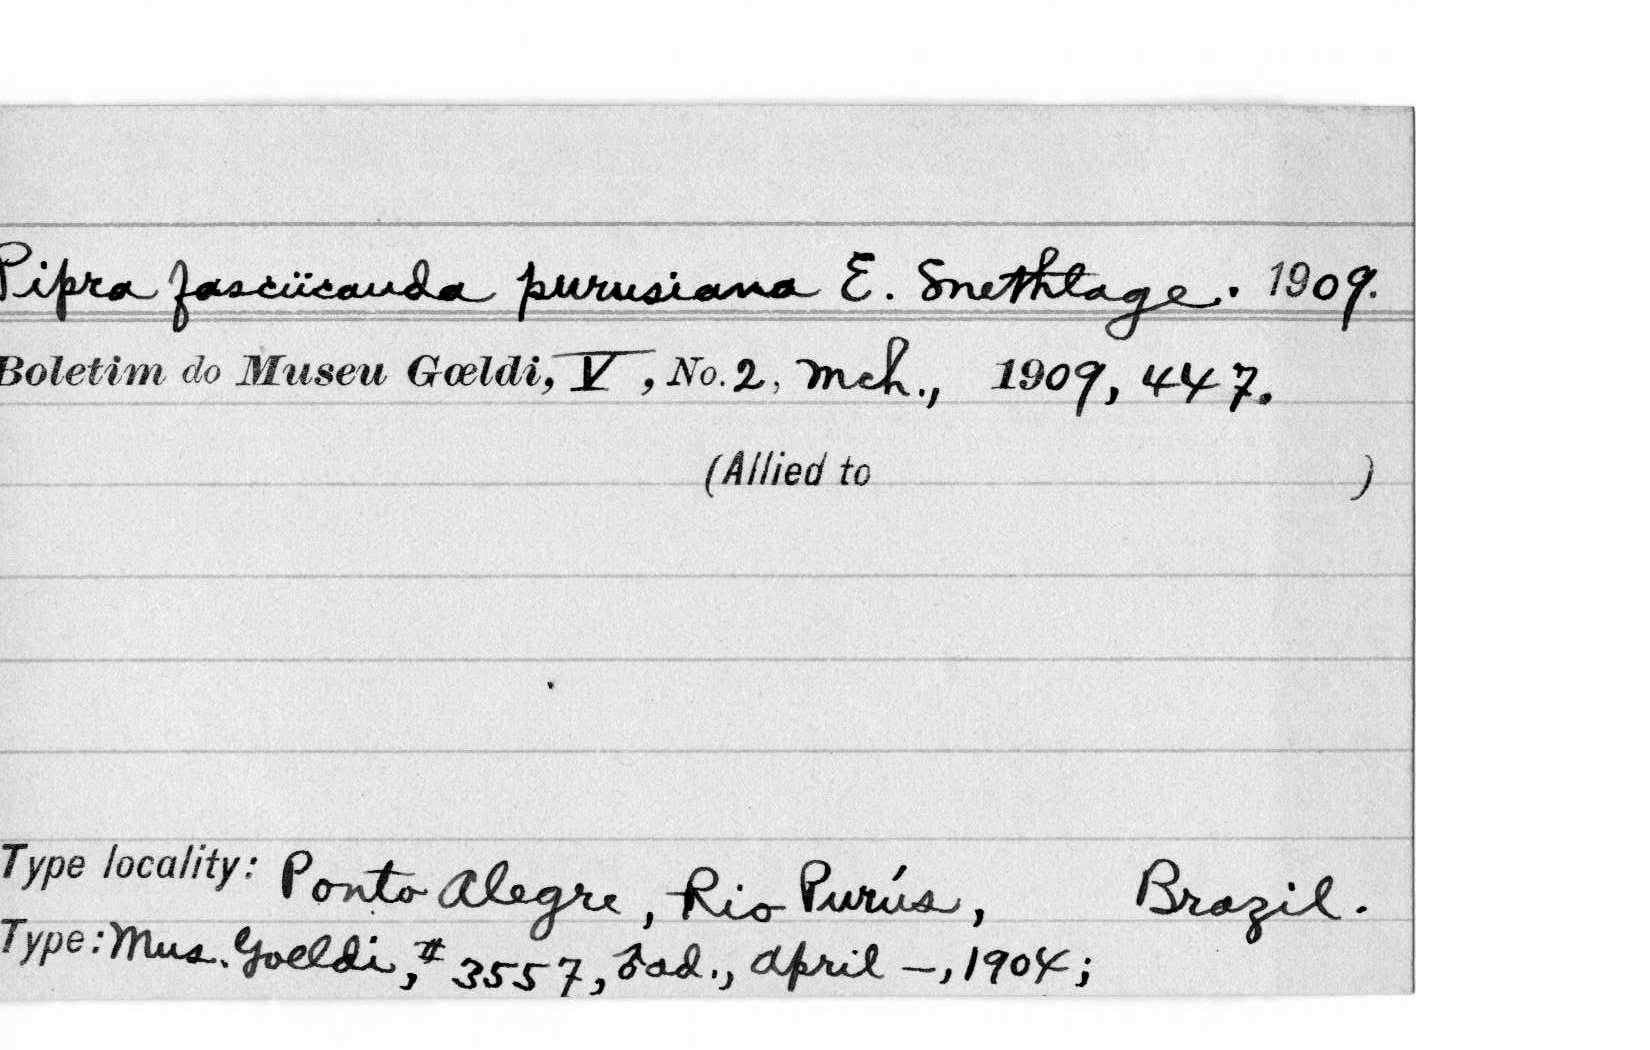 Pipra fasciicauda purusiana E. Snethlage. 1909.
Boletim do Museu Gœldi, V, No. 2, Mch., 1909, 447.
(Allied to )
Type locality: Ponto Alegre, Rio Purús, Brazil.
Type: Mus. Goeldi, # 3557, ♂ ad., April —, 1904;